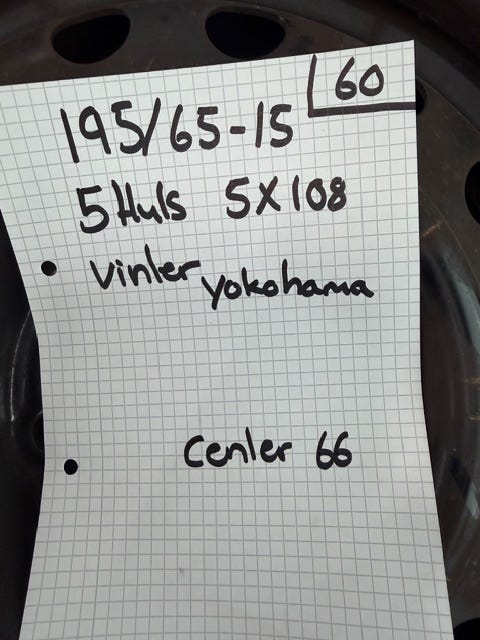 60
195/65-15
5 Huls 5X108
Vinter yokohama
Center 66